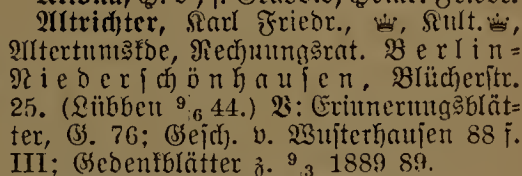 Altrichter, Karl Friedr., ♕, Kult.♕,
Altertumskde, Rechnungsrat. Berlin-
Niederschönhausen, Blücherstr.
25. (Lübben 9/6 44.) V: Erinnerungsblät-
ter, G. 76; Gesch. v. Wusterhausen 88 f.
III; Gedenkblätter z. 9/3 1889 89.